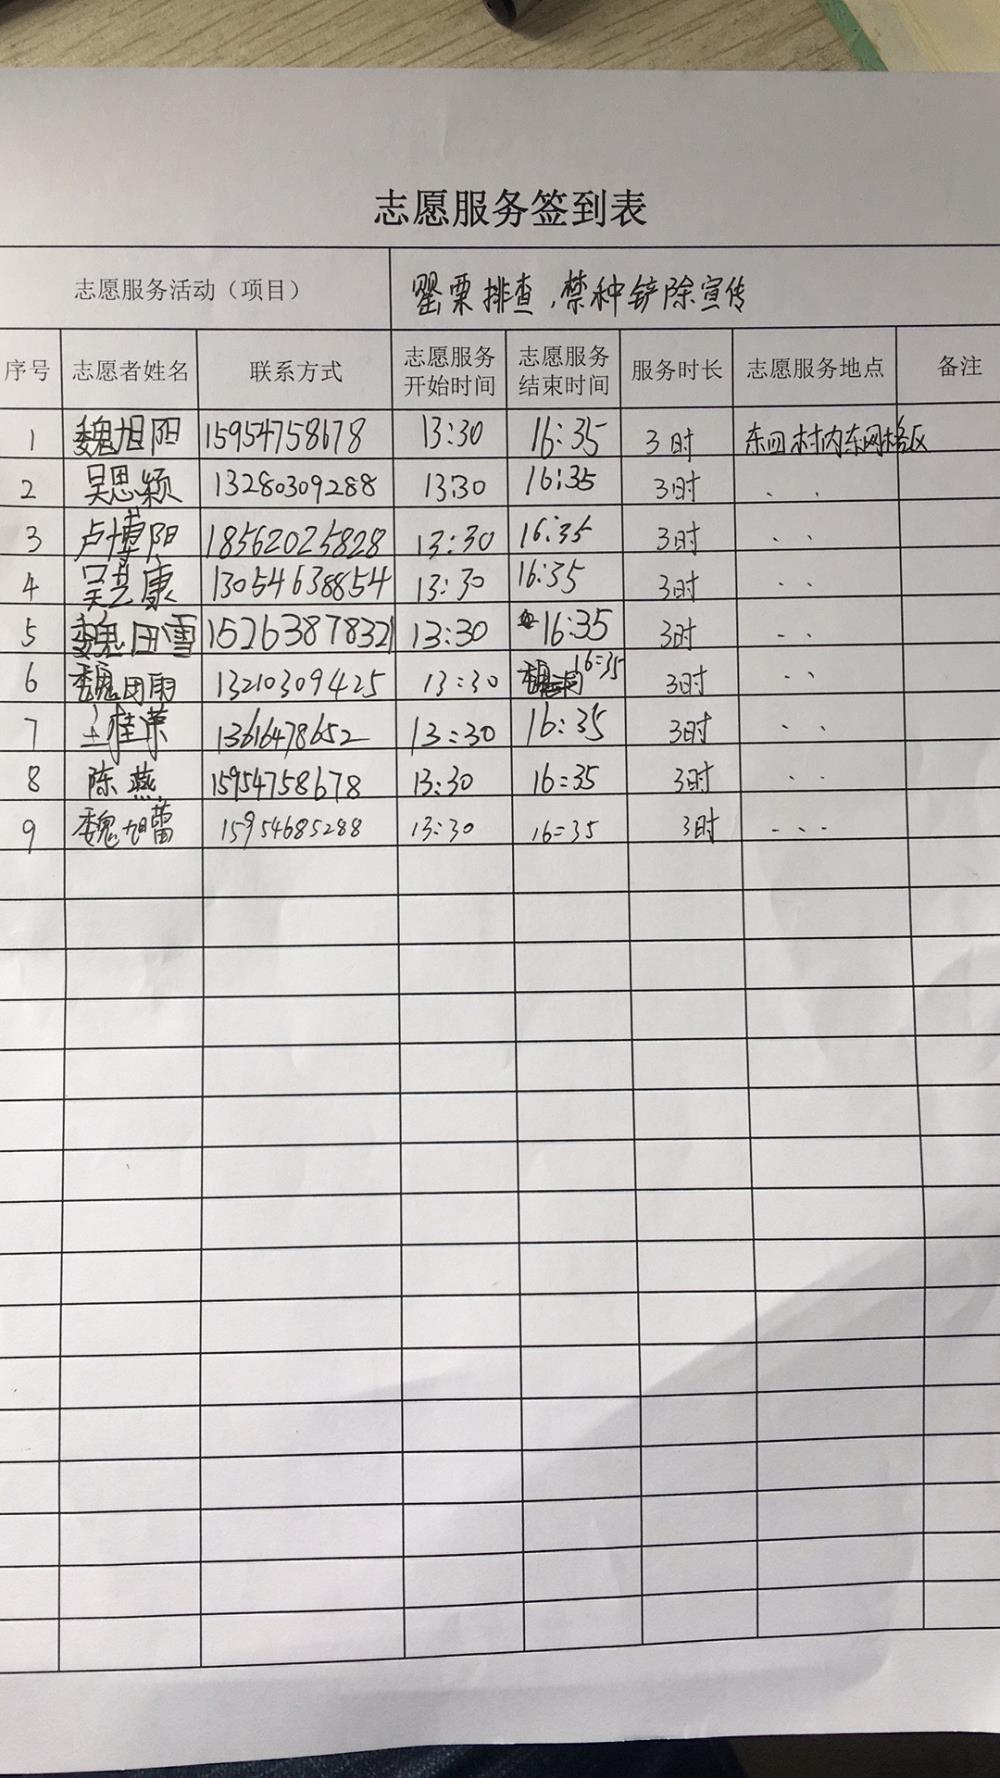 志愿服务签到表
志愿服务活动（项目） 罂粟排查，禁种铲除宣传
序号 志愿者姓名 联系方式 志愿服务开始时间 志愿服务结束时间 服务时长 志愿服务地点 备注
1 魏旭阳 15954758678 13:30 16:35 3时 东四村内东网格区
2 吴思颖 13280309288 13:30 16:35 3时 、、
3 卢博阳 18562025828 13:30 16:35 3时 、、
4 吴艺康 13054638854 13:30 16:35 3时 、、
5 魏田雪 15263878321 13:30 16:35 3时 、、
6 魏田雨 13210309425 13:30 16:35 3时 、、
7 桂荣 13616478652 13:30 16:35 3时 、、
8 陈燕 15954758678 13:30 16:35 3时 、、
9 魏旭蕾 15954685288 13:30 16:35 3时 、、、